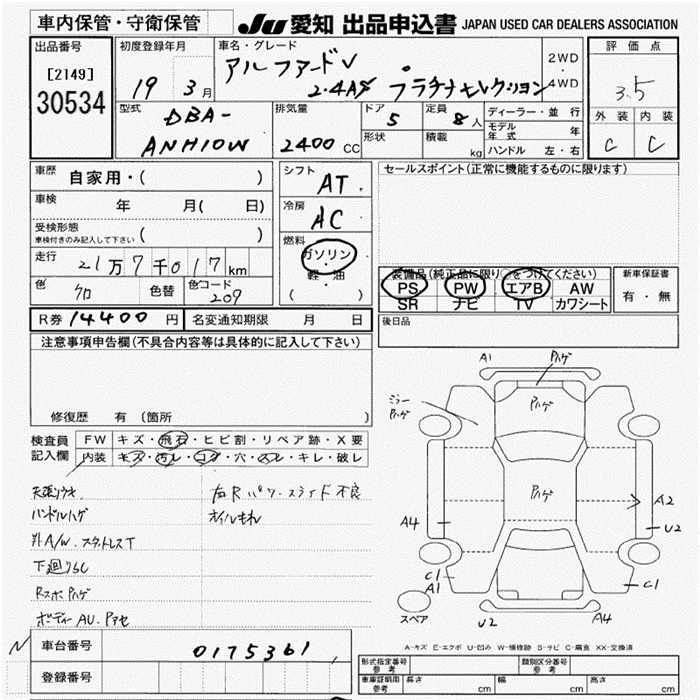 車内保管・守衛保管
JU 愛知 出品申込書 JAPAN USED CAR DEALERS ASSOCIATION
出品番号
[2149]
30534
初度登録年月
19 3月
車名・グレード
アルファードV
2.4AS プラチナセレクション
2WD
・
4WD
評価点
3.5
外装 内装
C C
型式
DBA-
ANH10W
排気量
2400 CC
ドア
5
定員
8人
形状
積載
kg
ディーラー・並行
モデル年式 年
ハンドル 左・右
車歴
自家用・( )
車検
年 月( 日)
受検形態
車検付きのみ記入して下さい ( )
走行
21万7千017km
色 クロ 色替 色コード 209
シフト
AT
冷房
AC
燃料
ガソリン
軽・油
( )
セールスポイント(正常に機能するものに限ります)
装備品(純正品に限り○をつけてください)
PS PW エアB AW
SR ナビ TV カワシート
新車保証書
有・無
R券 14400円 名変通知期限 月 日
後日品
注意事項申告欄(不具合内容等は具体的に記入して下さい)
修復歴 有(箇所
検査員記入欄
FW キズ・飛石・ヒビ割・リペア跡・X要
内装 キズ・汚レ・コゲ・穴・スレ・キレ・破レ
天張ウキ
ハンドルハゲ
外A/W. スタットレスT
下廻りSC
RスポPハゲ
ボディーAU. Pアセ
右Rパワースライド不良
オイルもれ
A1
Pハゲ
ミラー
Pハゲ
Pハゲ
Pハゲ
A4
A2
U2
C1
A1
C1
スペア
U2
A4
A-キズ E-エクボ U-凹み W-補修跡 S-サビ C-腐食 XX-交換済
N
車台番号
0175361
登録番号
型式指定番号
参考
類別区分番号
参考
車庫証明用
参考
長さ cm 幅 cm 高さ cm